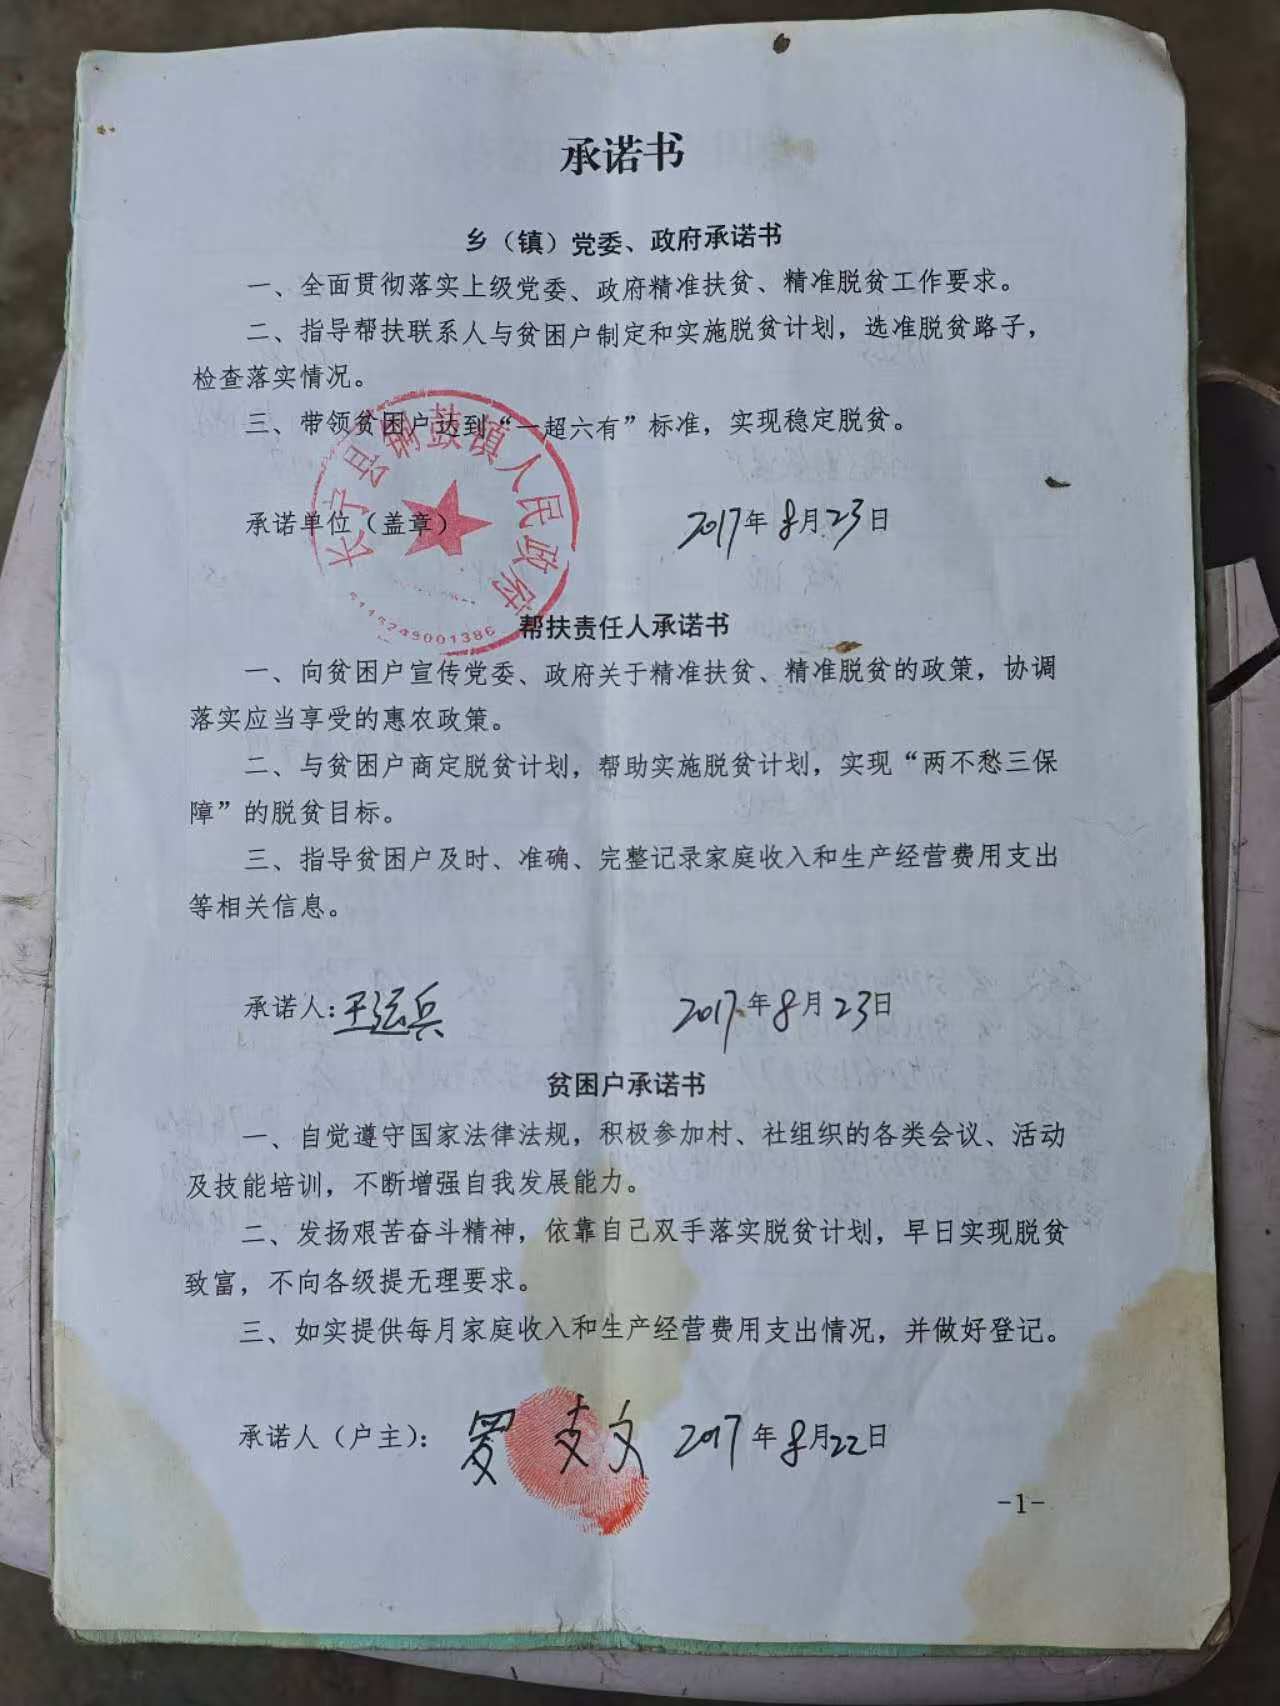 承诺书
乡（镇）党委、政府承诺书
一、全面贯彻落实上级党委、政府精准扶贫、精准脱贫工作要求。
二、指导帮扶联系人与贫困户制定和实施脱贫计划，选准脱贫路子，
检查落实情况。
三、带领贫困户达到“一超六有”标准，实现稳定脱贫。
长宁县铜鼓镇人民政府
承诺单位（盖章）
2017年8月23日
帮扶责任人承诺书
一、向贫困户宣传党委、政府关于精准扶贫、精准脱贫的政策，协调
落实应当享受的惠农政策。
二、与贫困户商定脱贫计划，帮助实施脱贫计划，实现“两不愁三保
障”的脱贫目标。
三、指导贫困户及时、准确、完整记录家庭收入和生产经营费用支出
等相关信息。
承诺人：王运兵 2017年8月23日
贫困户承诺书
一、自觉遵守国家法律法规，积极参加村、社组织的各类会议、活动
及技能培训，不断增强自我发展能力。
二、发扬艰苦奋斗精神，依靠自己双手落实脱贫计划，早日实现脱贫
致富，不向各级提无理要求。
三、如实提供每月家庭收入和生产经营费用支出情况，并做好登记。
承诺人（户主）：罗支文 2017年8月22日
-1-